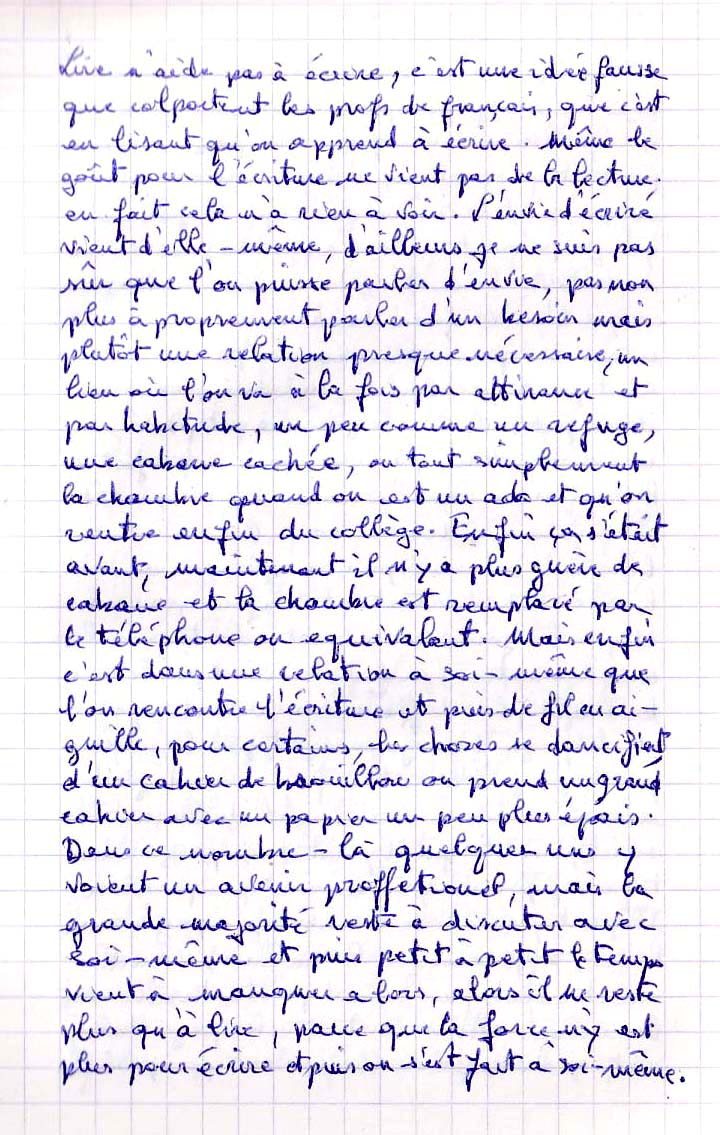 Lire n'aide pas à écrire, c'est une idée fausse
que colportent les profs de français, que c'est
en lisant qu'on apprend à écrire. Même le
goût pour l'écriture ne vient pas de la lecture.
en fait cela n'a rien à voir. L'envie d'écrire
vient d'elle-même, d'ailleurs je ne suis pas
sûr que l'on puisse parler d'envie, pas non
plus à proprement parler d'un besoin mais
plutôt une relation presque nécessaire, un
lieu où l'on va à la fois par attirance et
par habitude, un peu comme un refuge,
une cabane cachée, ou tout simplement
la chambre quand on est un ado et qu'on
rentre enfin du collège. Enfin ça s'était
avant, maintenant il n'y a plus guère de
cabane et la chambre est remplacé par
le téléphone ou equivalent. Mais enfin
c'est dans une relation à soi-même que
l'on rencontre l'écriture et puis de fil en ai-
guille, pour certains, les choses se
d'un cahier de brouillon on prend un grand
cahier avec un papier un peu plus épais.
Dans ce nombre-là quelques uns y
voient un avenir proffetionel, mais la
grande majorité reste à discuter avec
soi-même et puis petit à petit le temps
vient à manquer alors, alors il ne reste
plus qu'à lire, parce que la force n'y est
plus pour écrire et puis on s'est fait à soi-même.